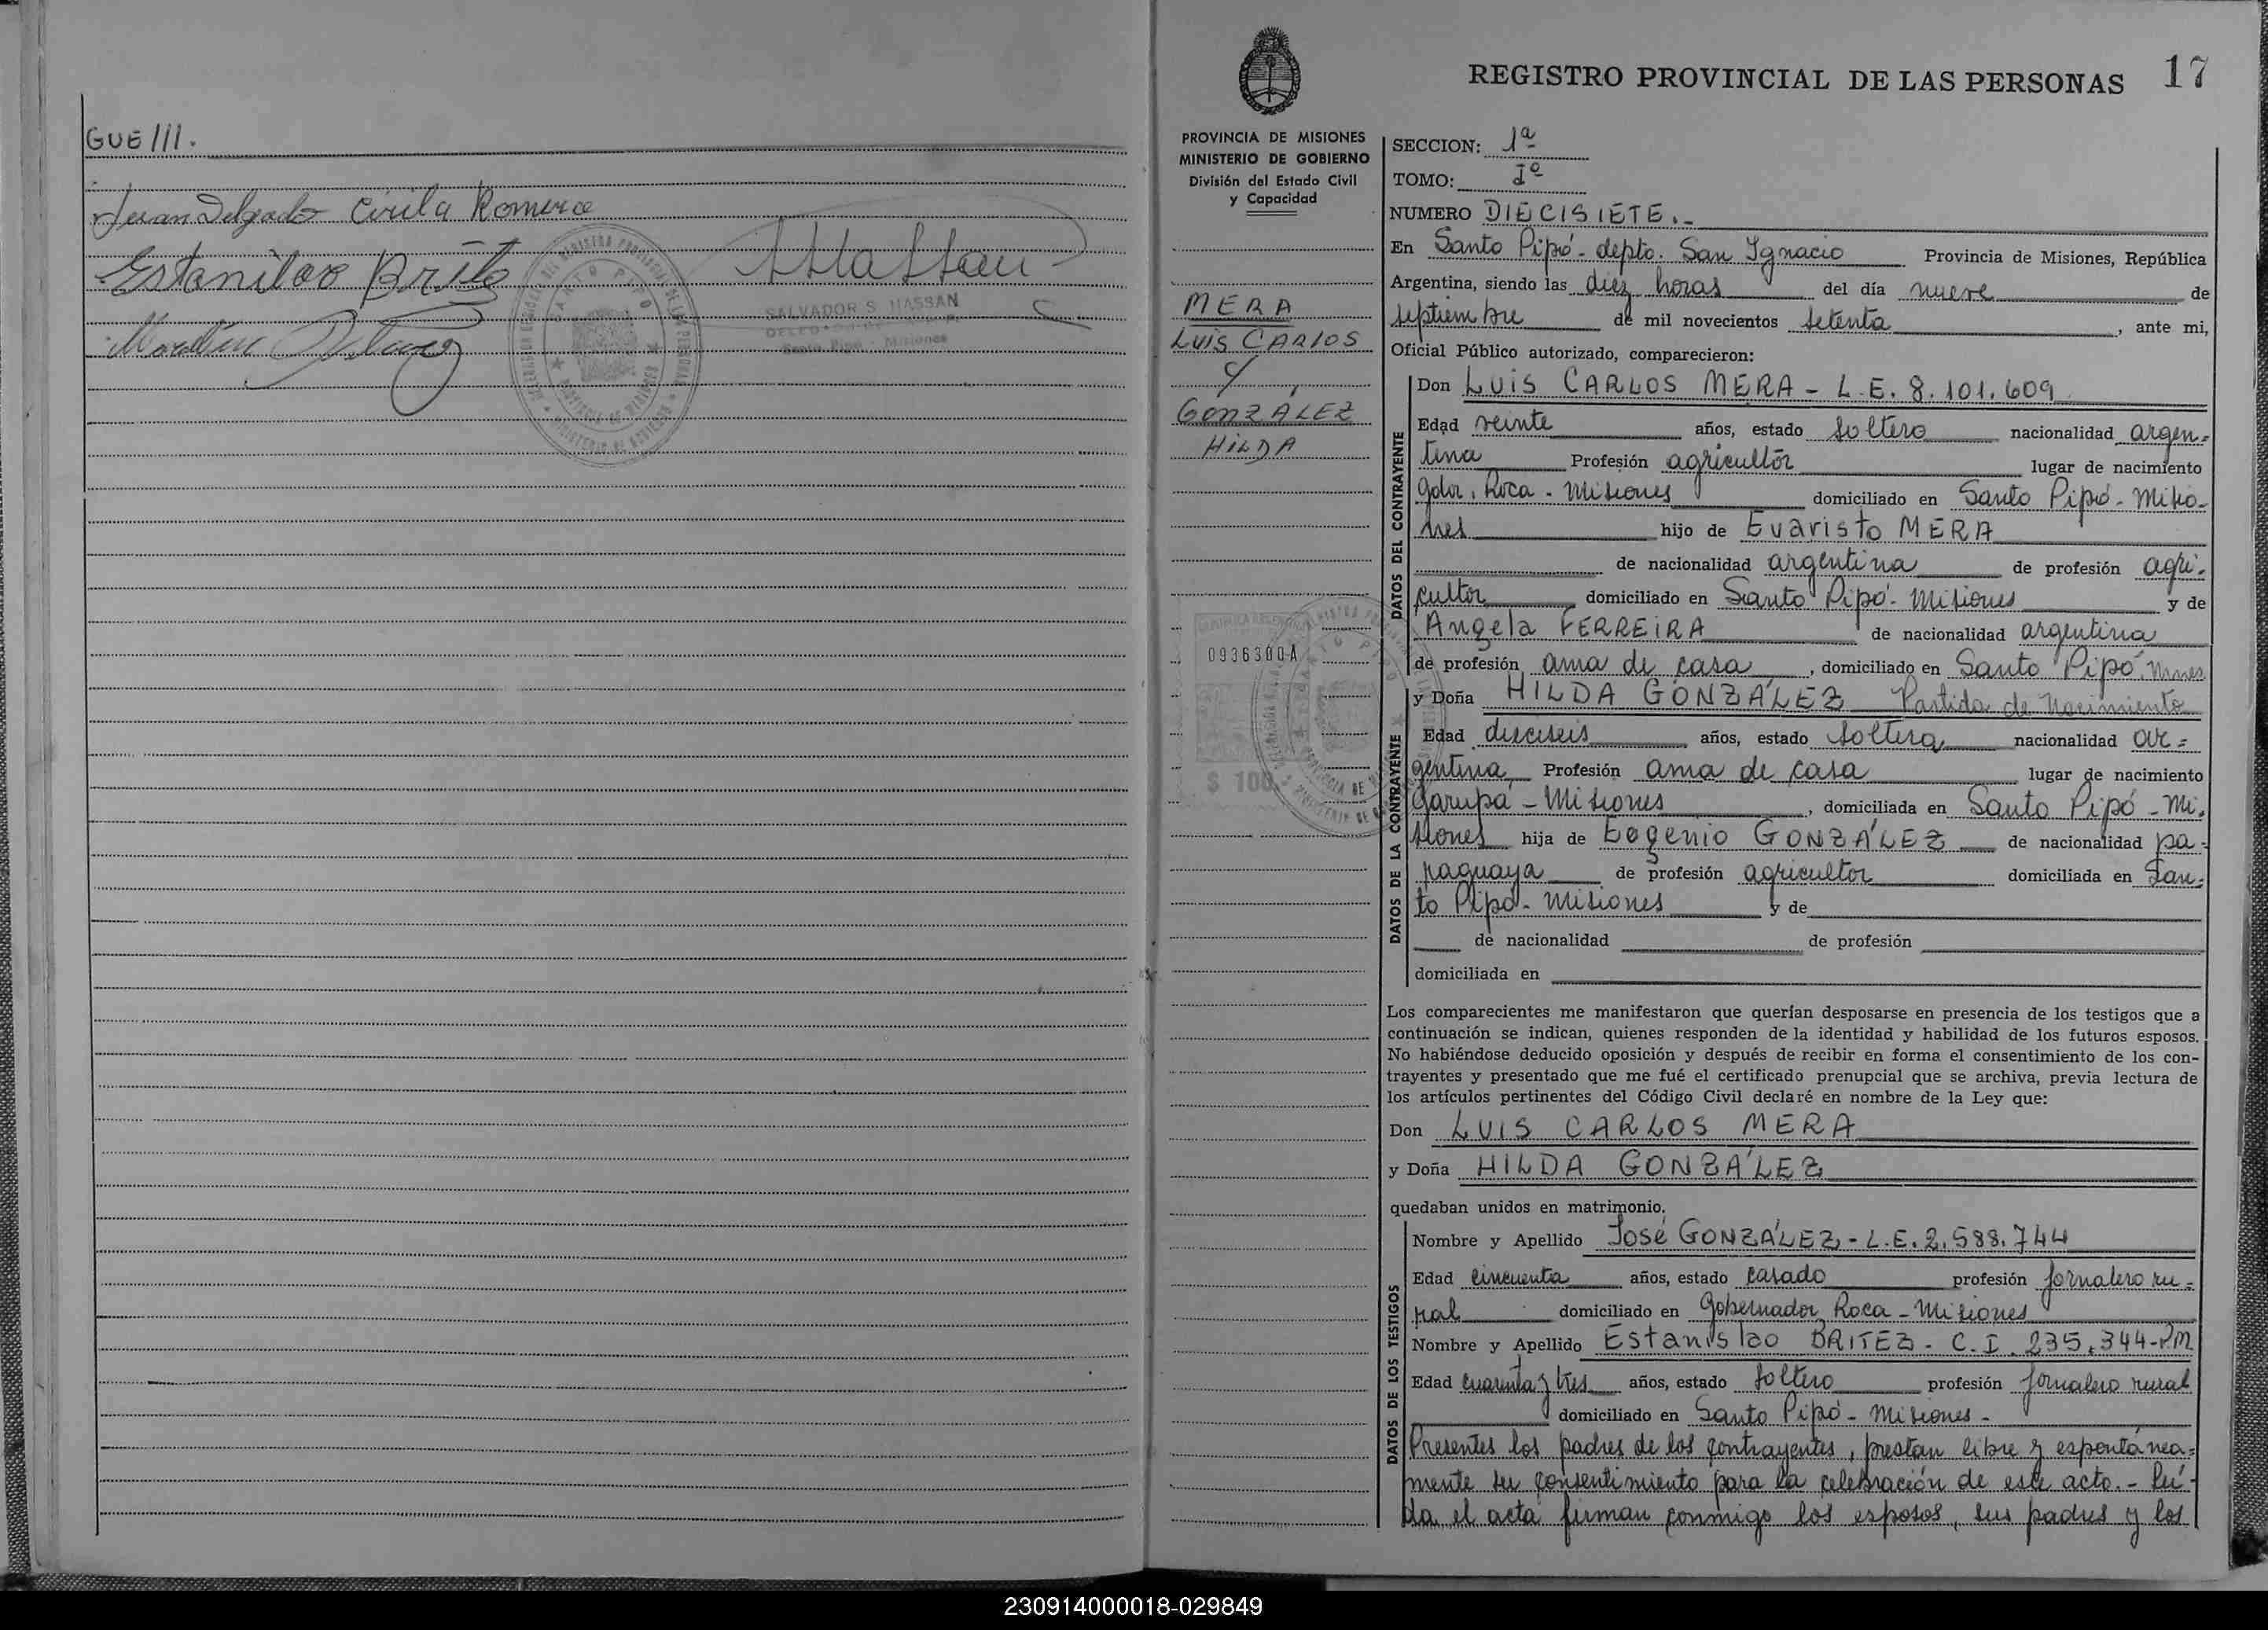 GUE///.
Juan Delgado Cirila Romero
Estanilao Britez
SALVADOR S. HASSAN
Santo Pipo - Misiones
SANTO PIPO
REGISTRO PROVINCIAL DE LAS PERSONAS 17
PROVINCIA DE MISIONES
MINISTERIO DE GOBIERNO
División del Estado Civil
y Capacidad
MERA
LUIS CARLOS
Y
GONZÁLEZ
HILDA
0936380A
$ 100
SECCION: 1ª
TOMO: Iº
NUMERO DIECISIETE.-
En Santo Pipó - depto. San Ignacio Provincia de Misiones, República
Argentina, siendo las diez horas del día nueve de
septiembre de mil novecientos setenta, ante mi,
Oficial Público autorizado, comparecieron:
DATOS DEL CONTRAYENTE
Don LUIS CARLOS MERA - L.E. 8.101.609
Edad veinte años, estado soltero nacionalidad argen=
tina Profesión agricultor lugar de nacimiento
Gdor. Roca - Misiones domiciliado en Santo Pipó - Misio-
nes hijo de Evaristo MERA
de nacionalidad argentina de profesión agri-
cultor domiciliado en Santo Pipó - Misiones y de
Angela FERREIRA de nacionalidad argentina
de profesión ama de casa, domiciliado en Santo Pipó, Mnes
y Doña HILDA GONZÁLEZ Partida de Nacimiento
DATOS DE LA CONTRAYENTE
Edad dieciseis años, estado soltera nacionalidad ar=
gentina Profesión ama de casa lugar de nacimiento
Garupá - Misiones, domiciliada en Santo Pipó - Mi-
siones hija de Eogenio GONZÁLEZ de nacionalidad pa-
raguaya de profesión agricultor domiciliada en San-
to Pipó - Misiones y de
de nacionalidad de profesión
domiciliada en
Los comparecientes me manifestaron que querían desposarse en presencia de los testigos que a
continuación se indican, quienes responden de la identidad y habilidad de los futuros esposos.
No habiéndose deducido oposición y después de recibir en forma el consentimiento de los con-
trayentes y presentado que me fué el certificado prenupcial que se archiva, previa lectura de
los artículos pertinentes del Código Civil declaré en nombre de la Ley que:
Don LUIS CARLOS MERA
y Doña HILDA GONZÁLEZ
quedaban unidos en matrimonio.
DATOS DE LOS TESTIGOS
Nombre y Apellido José GONZÁLEZ - L.E. 2.588.744
Edad cincuenta años, estado casado profesión jornalero ru=
ral domiciliado en Gobernador Roca - Misiones
Nombre y Apellido Estanislao BRITEZ - C.I. 235.344-P.M
Edad cuarenta y tres años, estado soltero profesión jornalero rural
domiciliado en Santo Pipó - Misiones -
Presentes los padres de los contrayentes, prestan libre y espontánea=
mente su consentimiento para la celebración de este acto. - Leí-
da el acta firman conmigo los esposos, sus padres y los
230914000018-029849